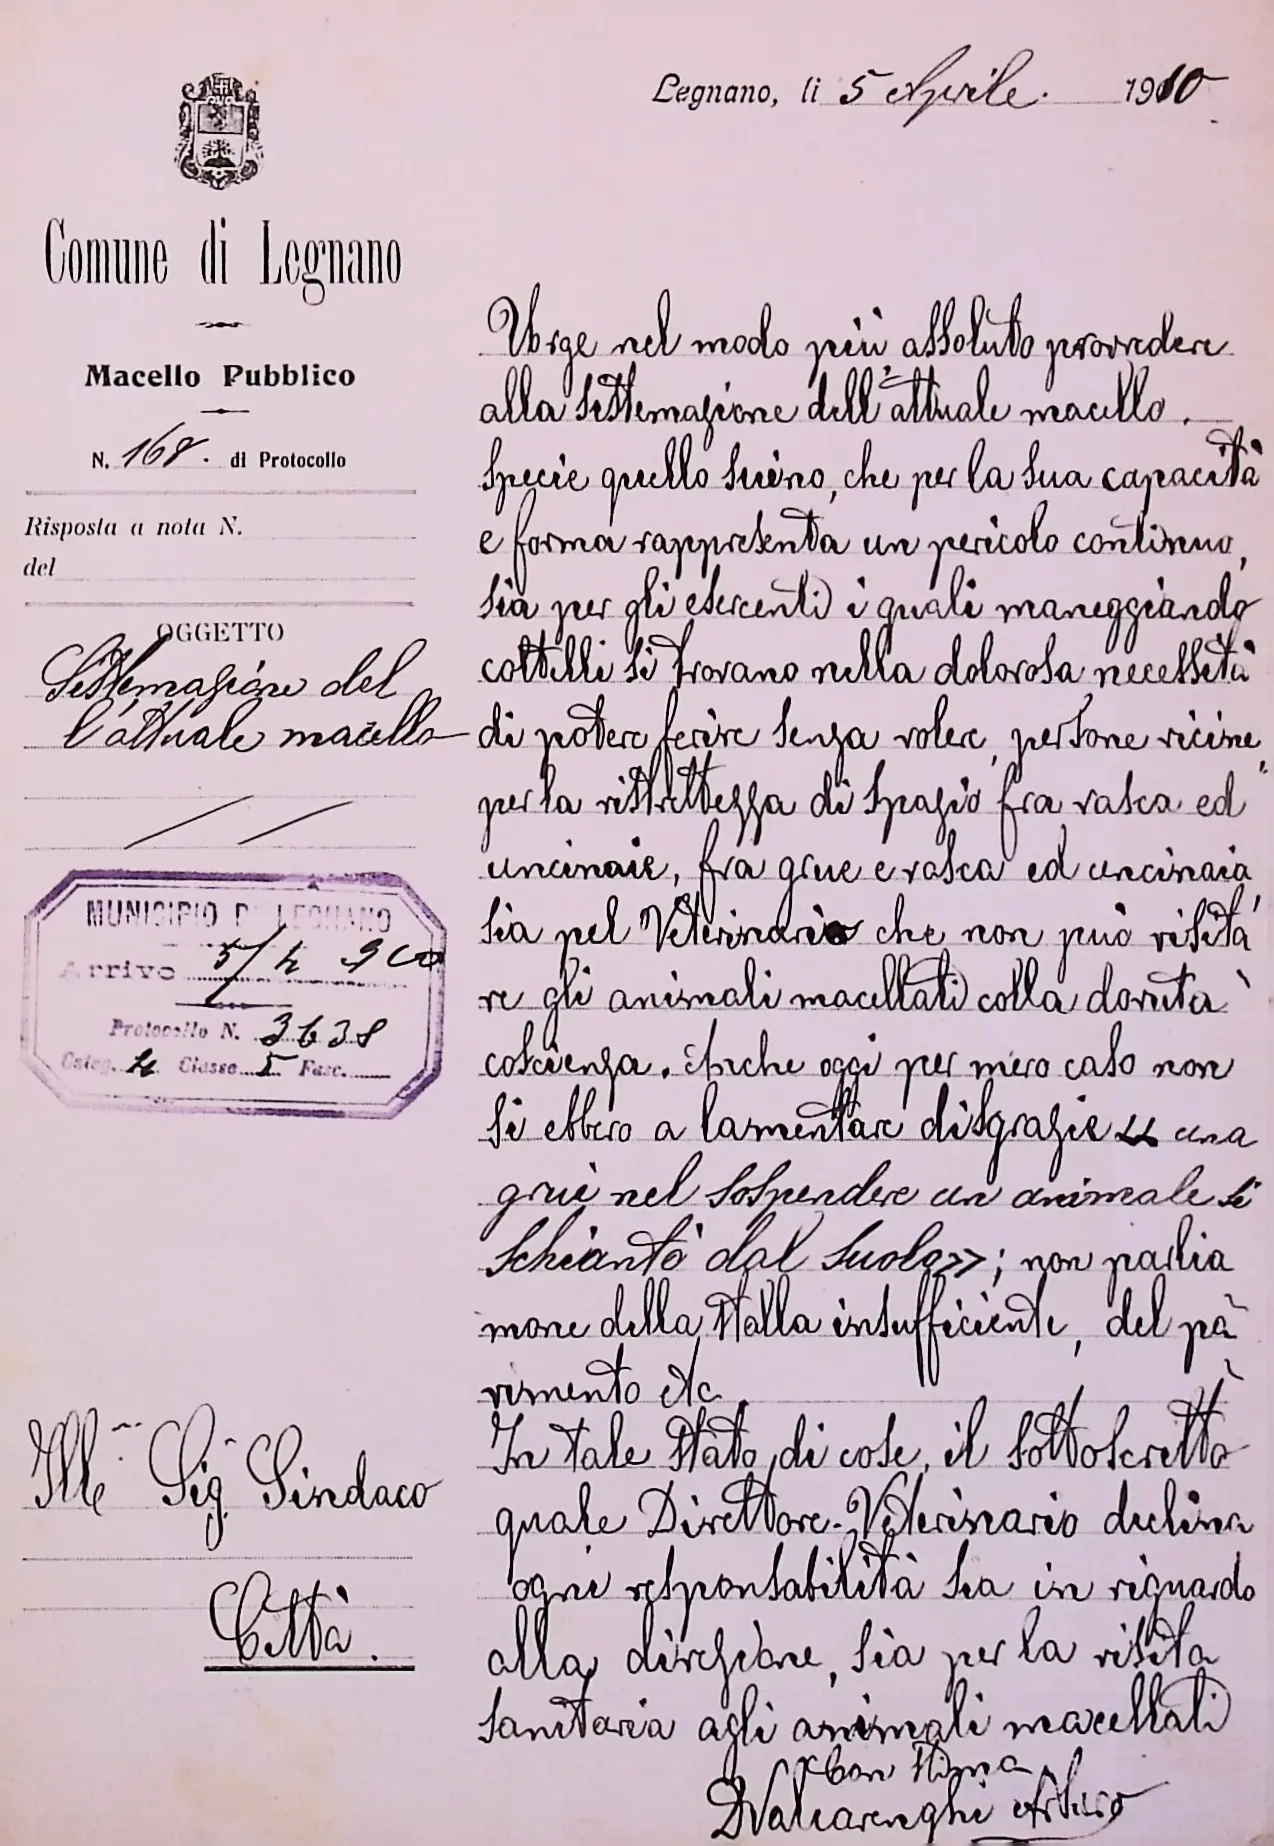 Legnano, li 5 Aprile. 1910
Comune di Legnano
Macello Pubblico
N. 168. di Protocollo
Risposta a nota N.
del
OGGETTO
Sistemazione del
l'attuale macello
MUNICIPIO DI LEGNANO
Arrivo 5/4 910
Protocollo N. 3638
Categ. 4 Classe 5 Fasc.
Ill. Sig. Sindaco
Città.
Urge nel modo più assoluto provvedere
alla sistemazione dell'attuale macello.
specie quello suino, che per la sua capacità
e forma rappresenta un pericolo continuo,
sia per gli esercenti i quali maneggiando
coltelli si trovano nella dolorosa necessità
di potere ferire senza volere, persone vicine,
per la ristrettezza di spazio fra vasca ed
uncinaie, fra grue e vasca ed uncinaia,
sia pel Veterinario che non può visita
re gli animali macellati colla dovuta
coscienza. Anche oggi per mero caso non
si ebbero a lamentare disgrazie << una
grue nel sospendere un animale si
schiantò dal suolo>>; non parlia
mone della stalla insufficiente, del pa
vimento etc.
In tale stato di cose, il sottoscritto
quale Direttore-Veterinario declina
ogni responsabilità sia in riguardo
alla direzione, sia per la visita
sanitaria agli animali macellati
Con stima
D Valcarenghi Arturo